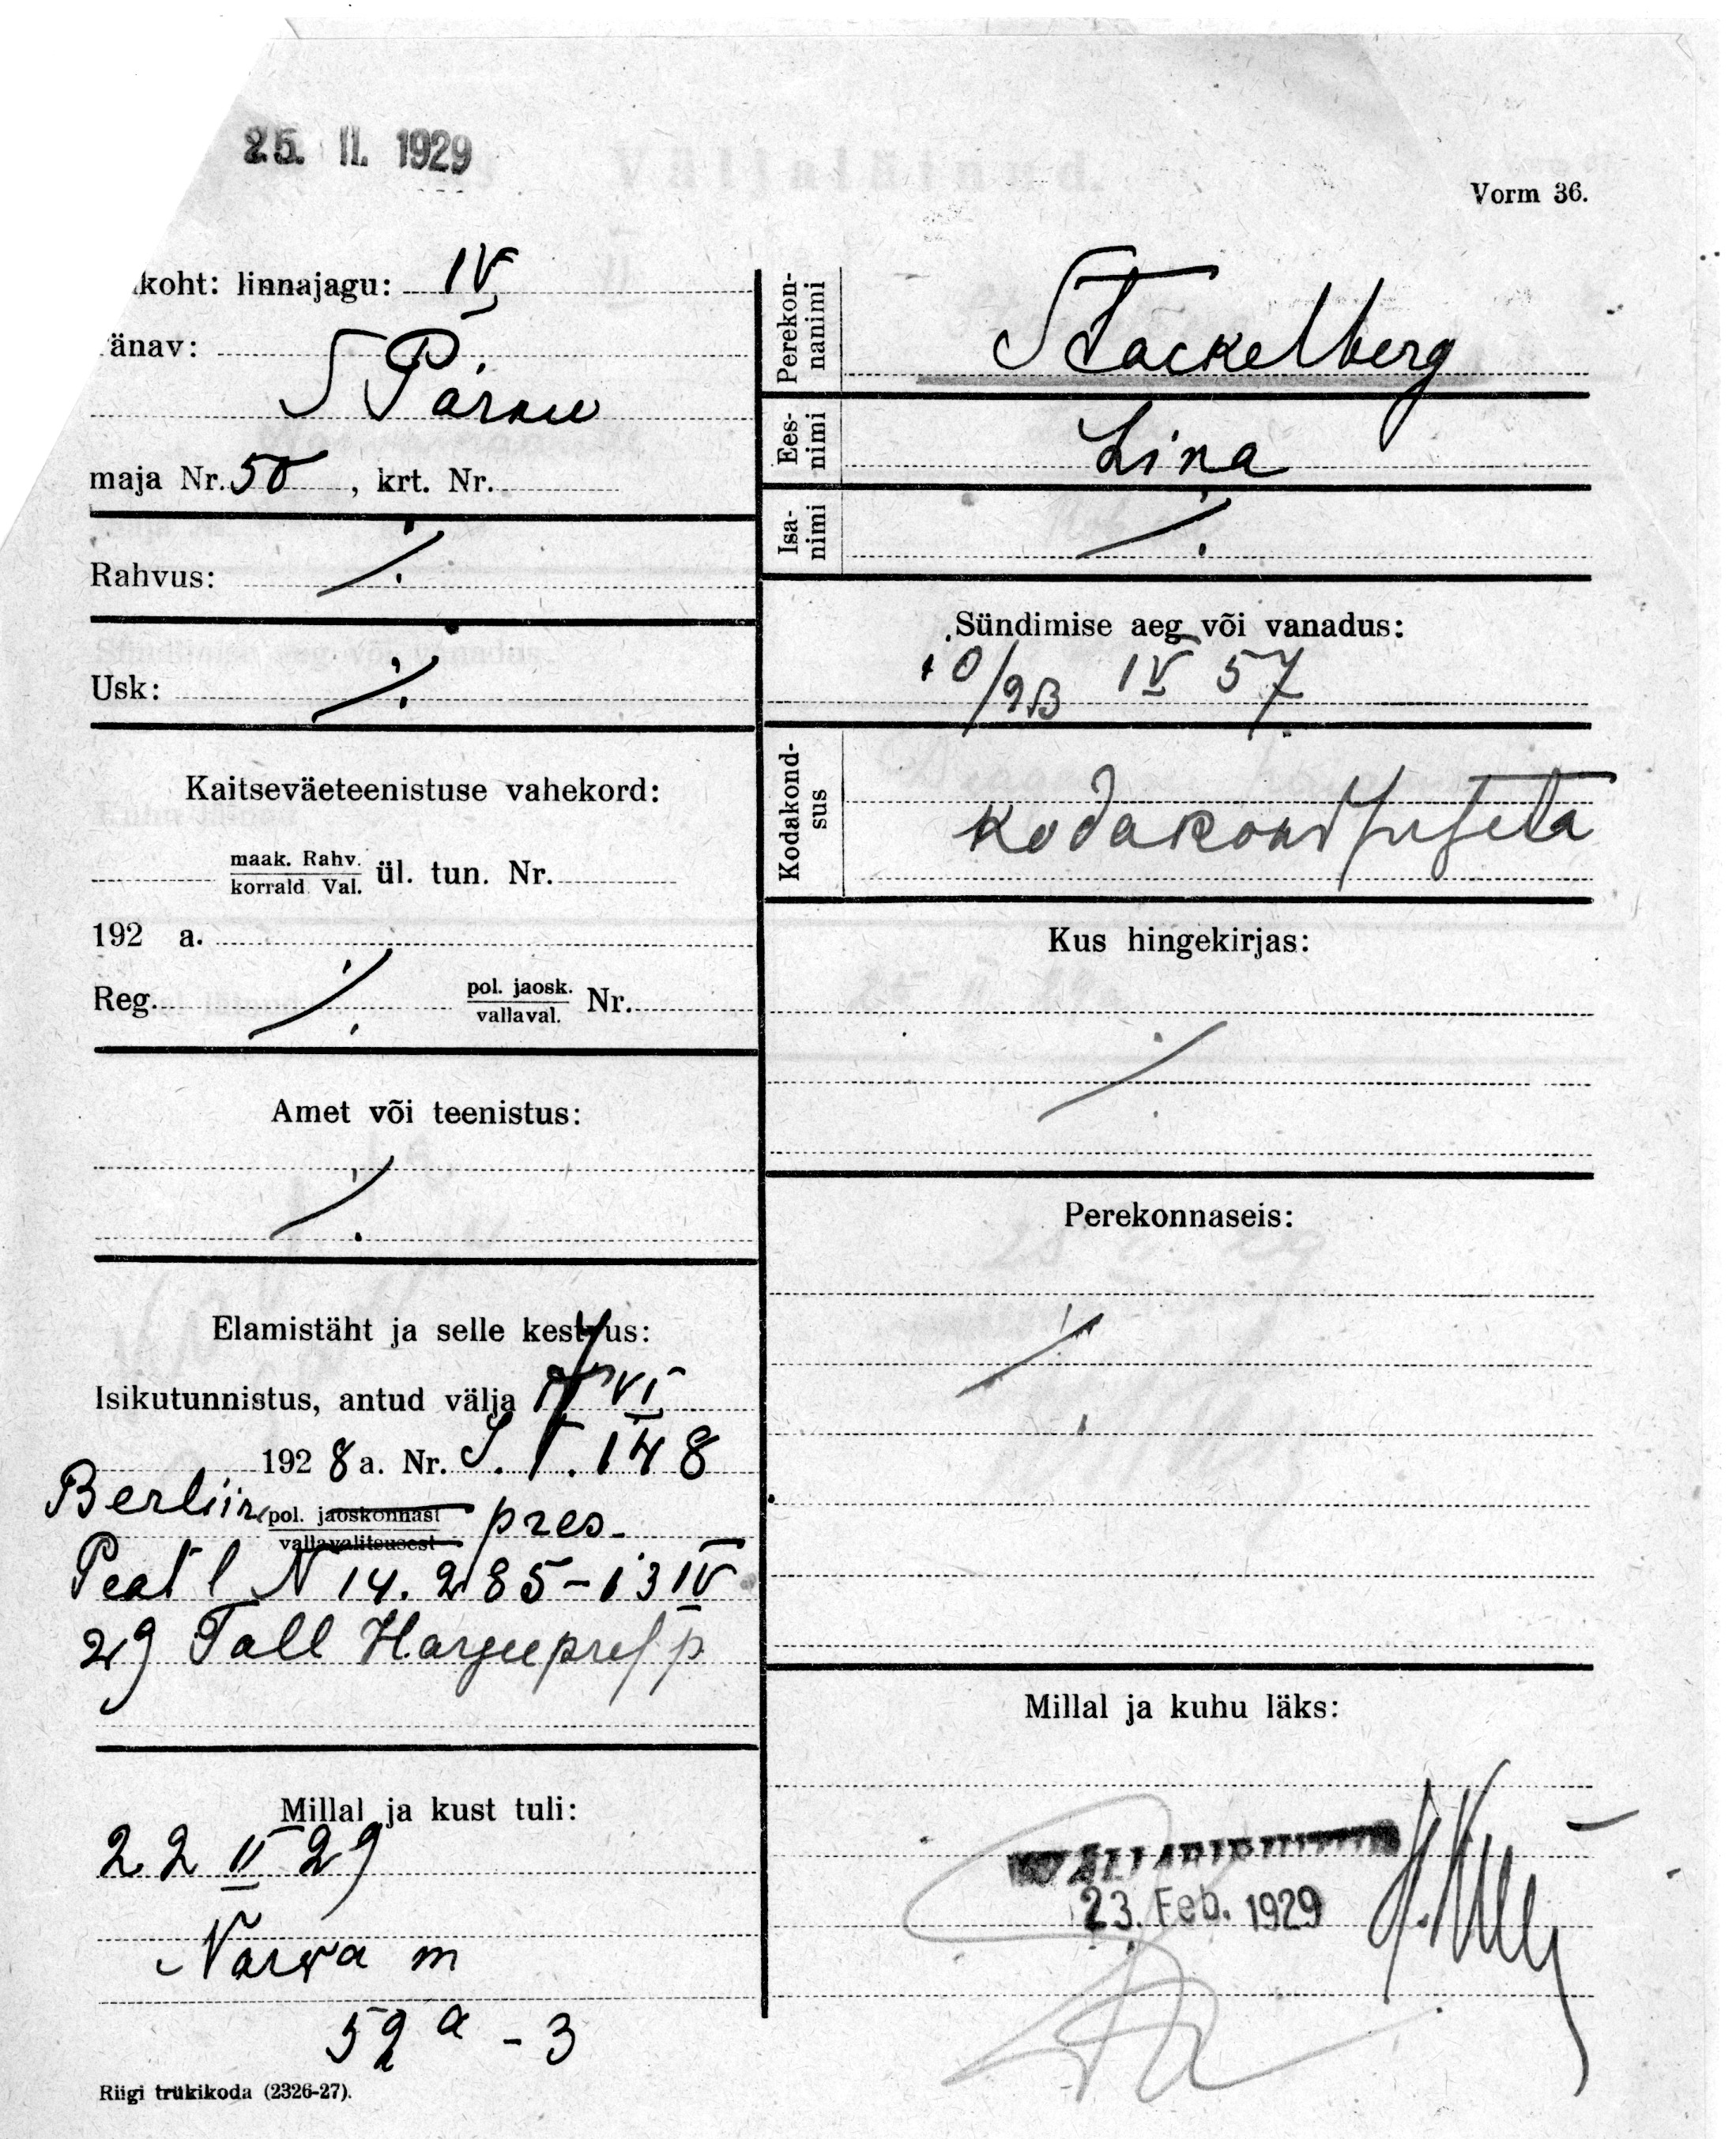 25. II. 1929
Vorm 36.
koht: linnajagu: IV
änav:
S Pärnu
maja Nr. 50, krt. Nr.
Rahvus: ./.
Usk: ./.
Kaitseväeteenistuse vahekord:
maak. Rahv.
korrald. Val. ül. tun. Nr.
192 a.
Reg. ./. pol. jaosk.
vallaval. Nr.
Amet või teenistus:
./.
Elamistäht ja selle kestvus:
Isikutunnistus, antud välja VI
1928 a. Nr. 148
Berliini pol. jaoskonnast pres.
vallavalitsusest
N 14.285-13 IV
29 Tall Harju pref p
Millal ja kust tuli:
22 II 29
Narva m
52a - 3
Riigi trükikoda (2326-27).
Perekon-
nanimi
Stackelberg
Ees-
nimi
Lina
Isa-
nimi
./.
Sündimise aeg või vanadus:
10/23 IV 57
Kodakond-
sus
Kodakondsuseta
Kus hingekirjas:
./.
Perekonnaseis:
./.
Millal ja kuhu läks:
23. Feb. 1929